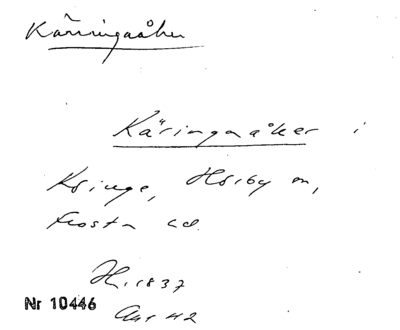 Käringaåker
Käringaåker i
Kringe, Hörby sn,
Frosta hd.
H. 1837
Nr 10446
Avs 42